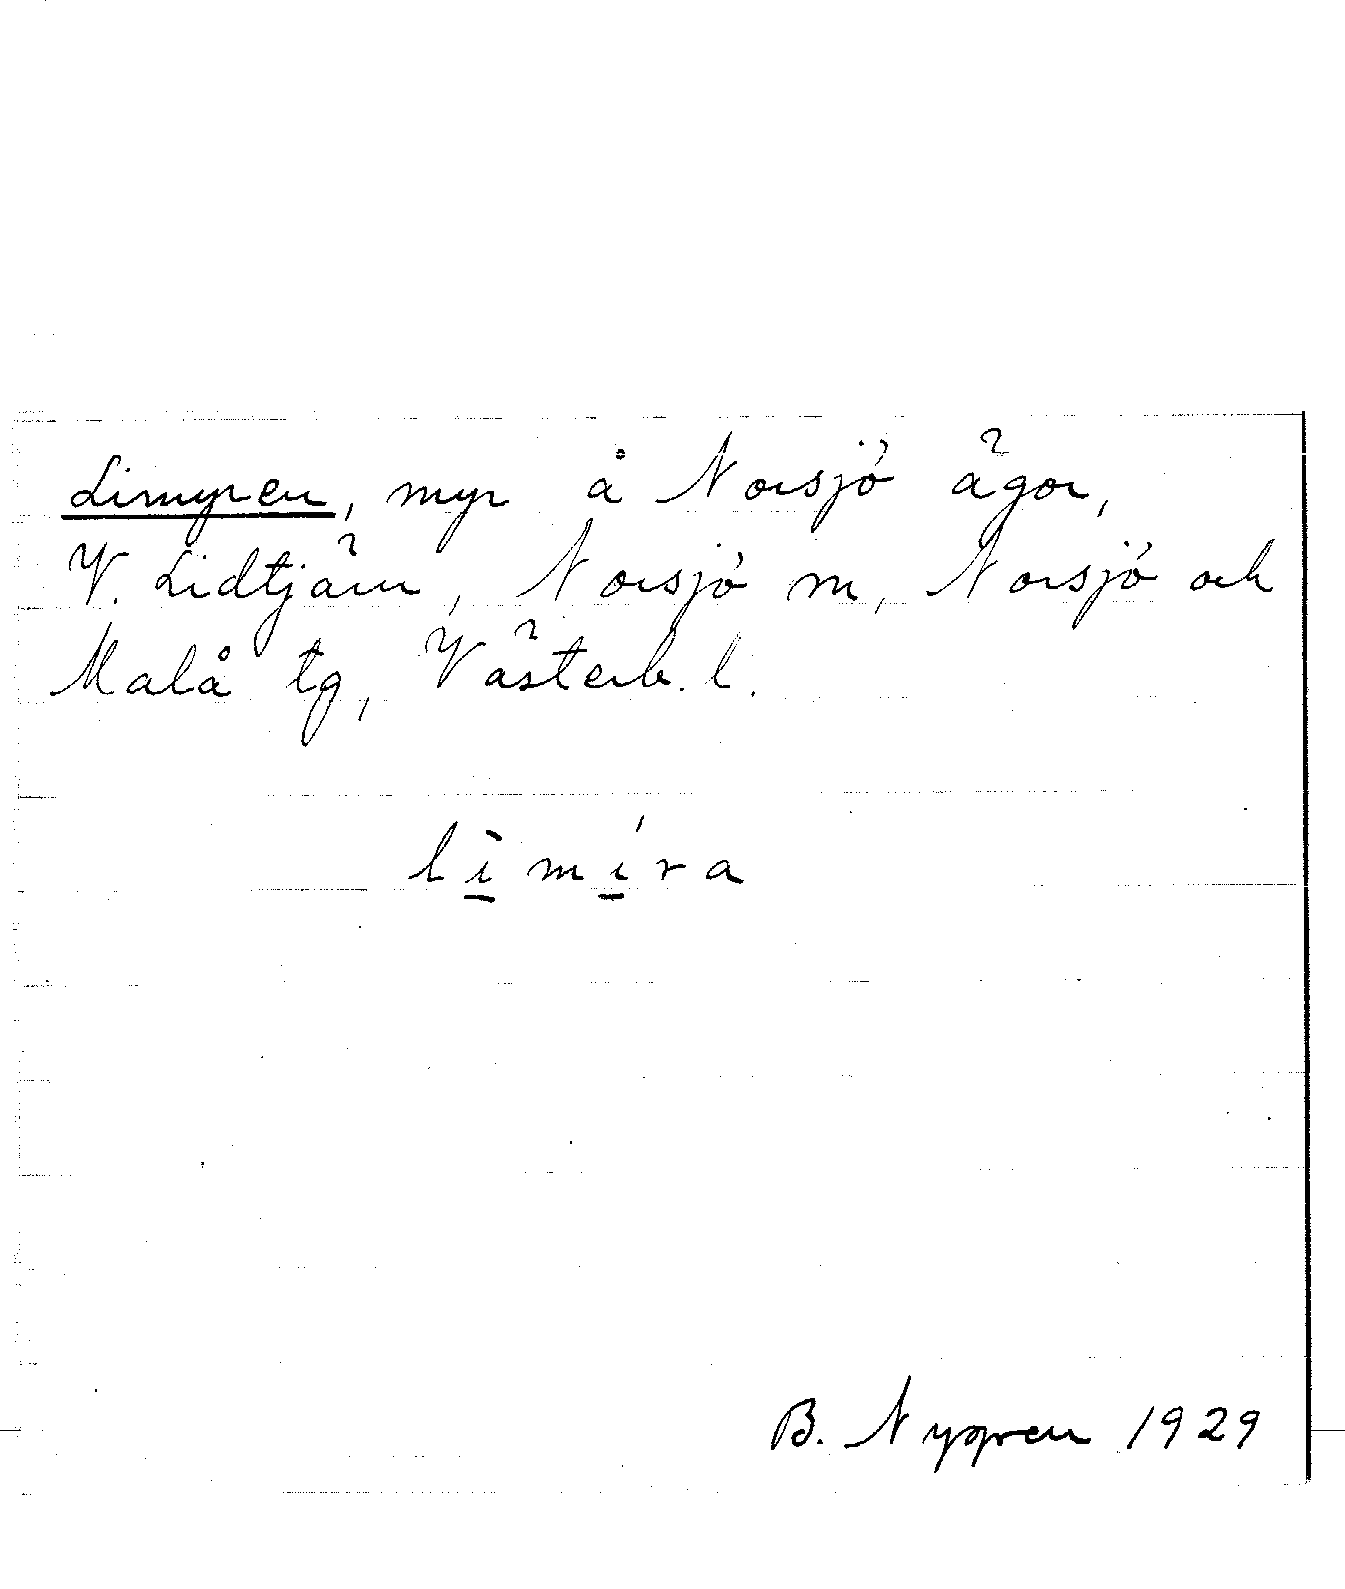 Limyren, myr å Norsjö ägor,
V. Lidtjärn, Norsjö m, Norsjö och
Malå tg, Västerb. l.
lìmíra
B. Nygren 1929